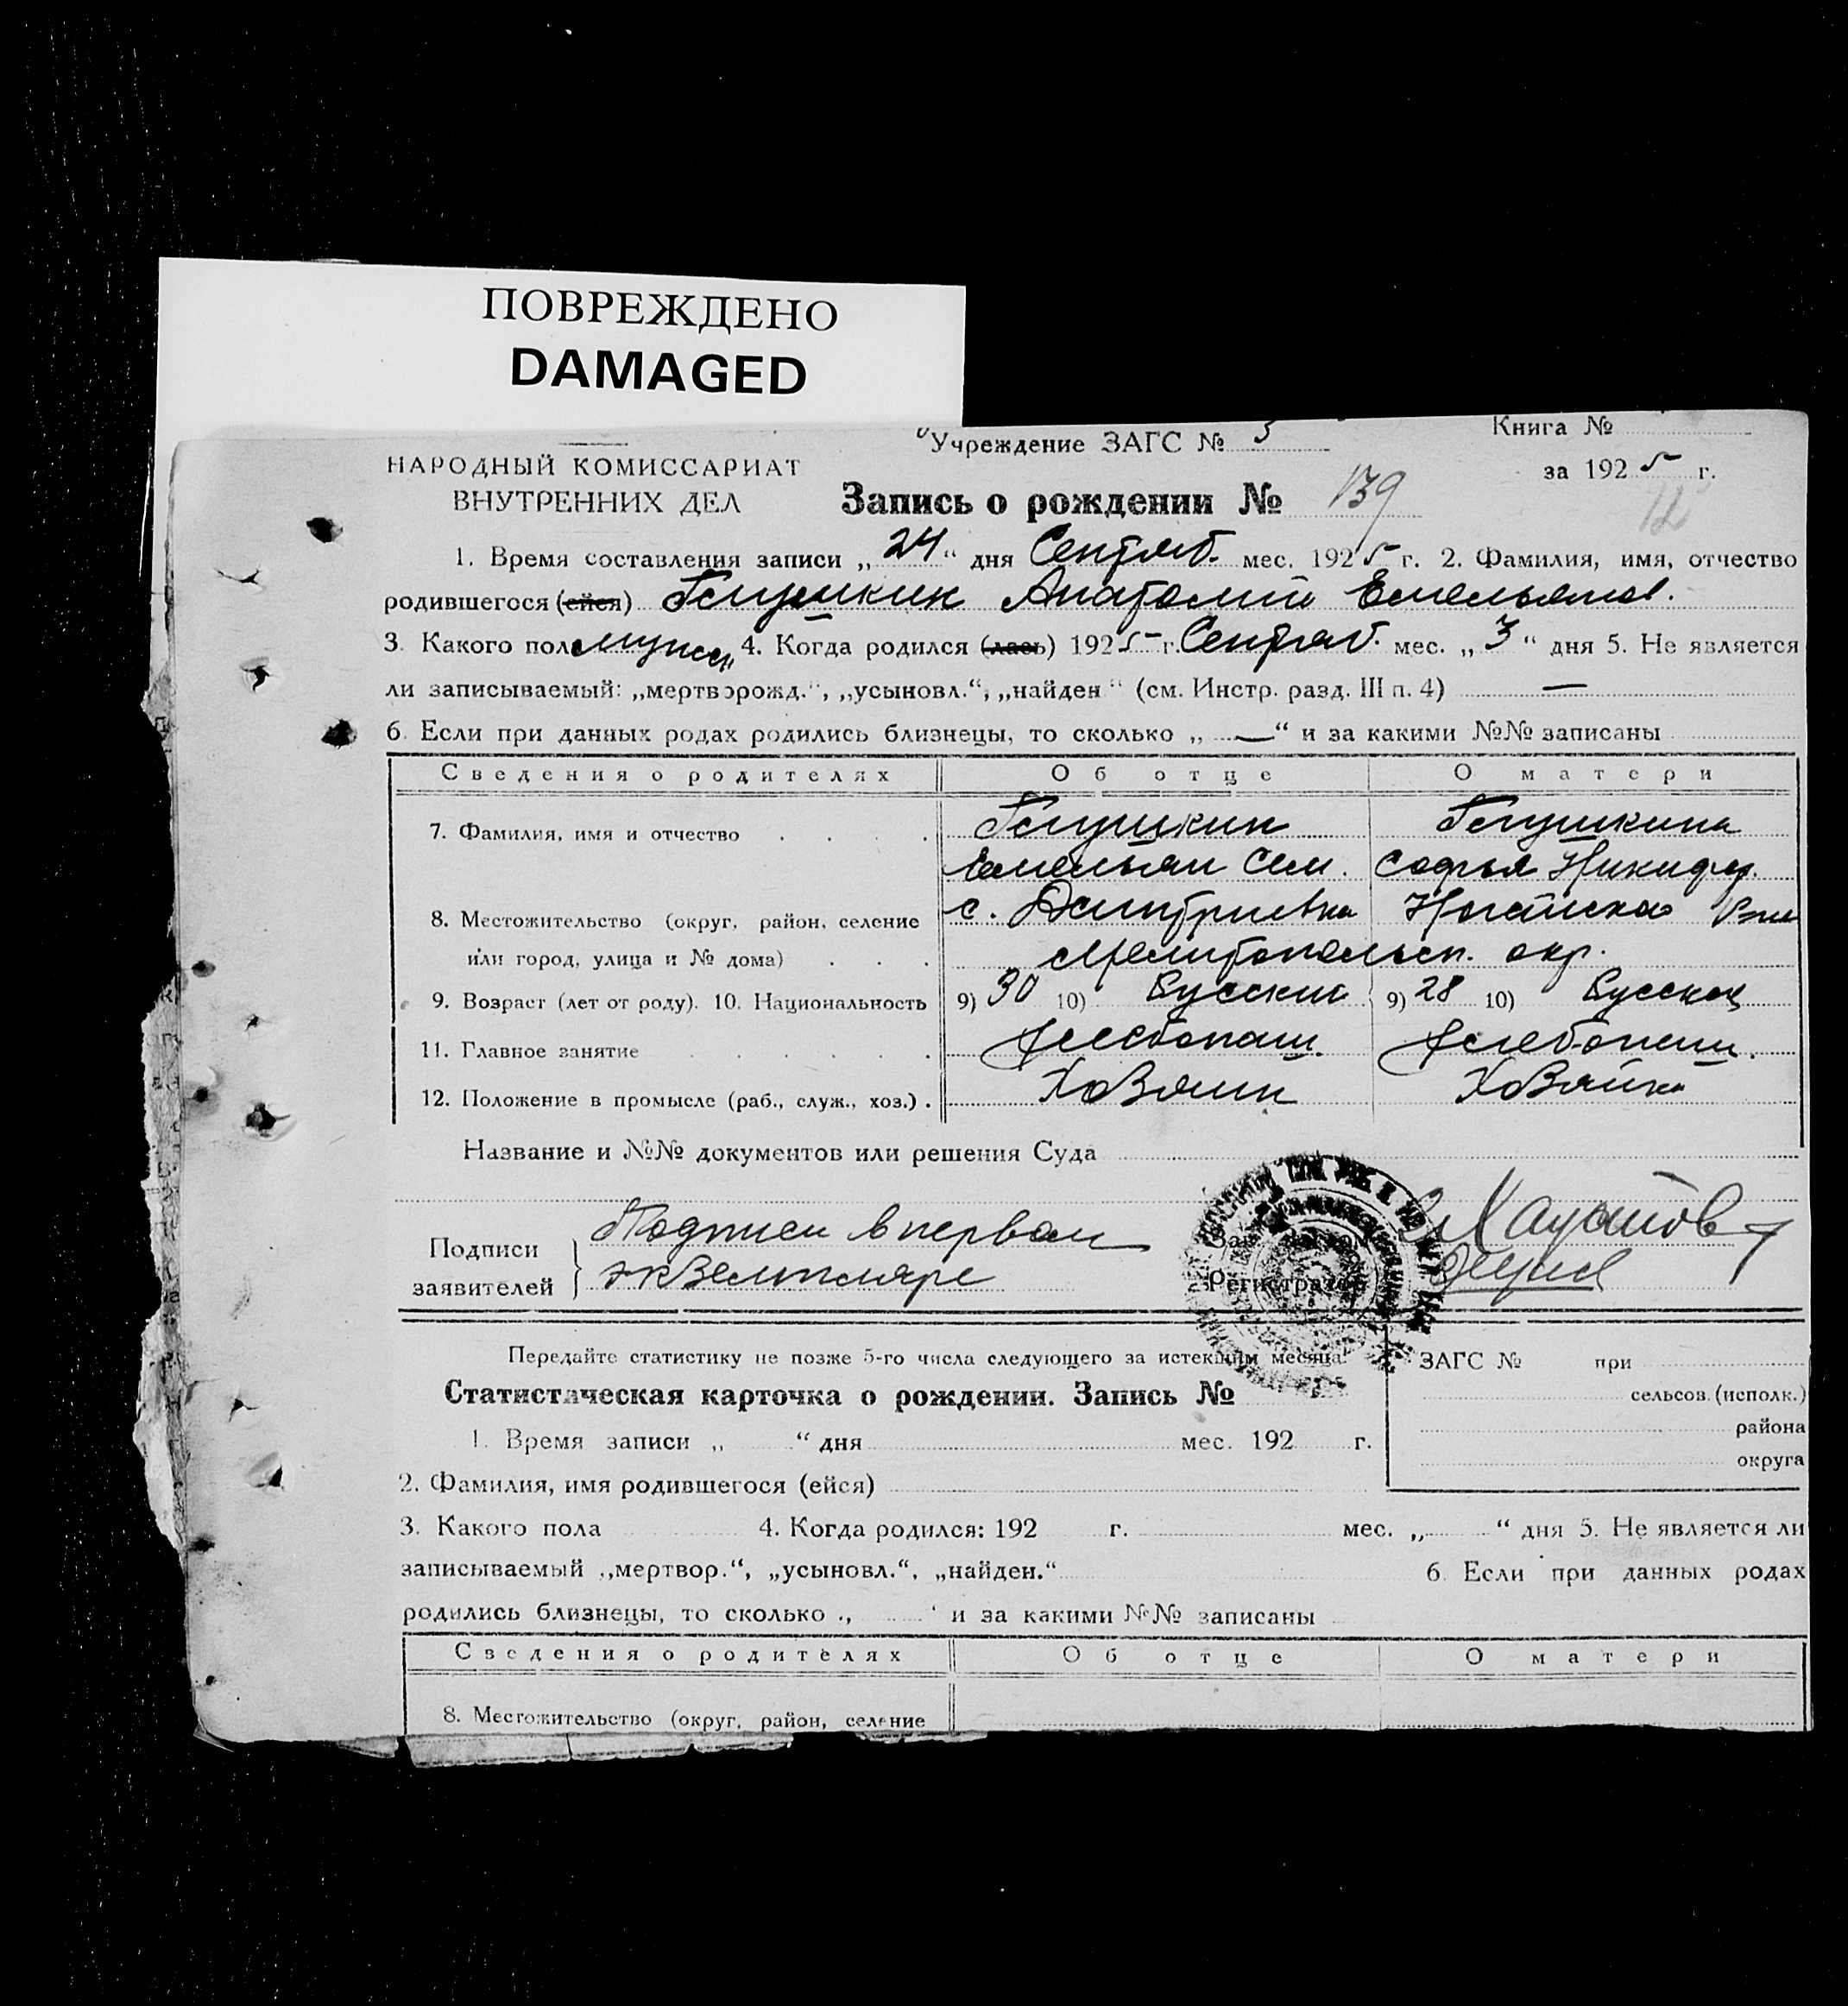 ПОВРЕЖДЕНО
DAMAGED
Учреждение ЗАГС № 3
Книга №
НАРОДНЫЙ КОМИССАРИАТ
ВНУТРЕННИХ ДЕЛ
за 1925 г.
Запись о рождении № 139
12
1. Время составления записи „24“ дня Сентяб. мес. 1925 г. 2. Фамилия, имя, отчество
родившегося (ейся) Глушкин Анатолий Емельянов.
3. Какого пола мужск 4. Когда родился (лась) 1925 г. Сентяб. мес. „3“ дня 5. Не является
ли записываемый: „мертворожд.“, „усыновл.“, „найден“ (см. Инстр. разд. III п. 4) —
6. Если при данных родах родились близнецы, то сколько „—“ и за какими №№ записаны
Сведения о родителях Об отце О матери
7. Фамилия, имя и отчество . . . . Глушкин Глушкина
Емельян Сем. Софья Никифор.
8. Местожительство (округ, район, селение с. Дмитриевка Ногайско
или город, улица и № дома) . . . Мелитопольск. окр.
9. Возраст (лет от роду). 10. Национальность 9) 30 10) Русский 9) 28 10) Русская
11. Главное занятие . . . . . . Хлебопаш. Хлебопаш.
12. Положение в промысле (раб., служ., хоз.) . Хозяин Хозяйка
Название и №№ документов или решения Суда
Подписи в первом
Подписи
заявителей
экземпляре
Регистратор
Хаустов
Передайте статистику не позже 5-го числа следующего за истекшим месяца.
ЗАГС № при
Статистическая карточка о рождении. Запись №
сельсов. (исполк.)
района
1. Время записи „ “ дня мес. 192 г.
округа
2. Фамилия, имя родившегося (ейся)
3. Какого пола 4. Когда родился: 192 г. мес. „ “ дня 5. Не является ли
записываемый „мертвор.“, „усыновл.“, „найден.“ 6. Если при данных родах
родились близнецы, то сколько „ “ и за какими №№ записаны
Сведения о родителях Об отце О матери
8. Местожительство (округ, район, селение